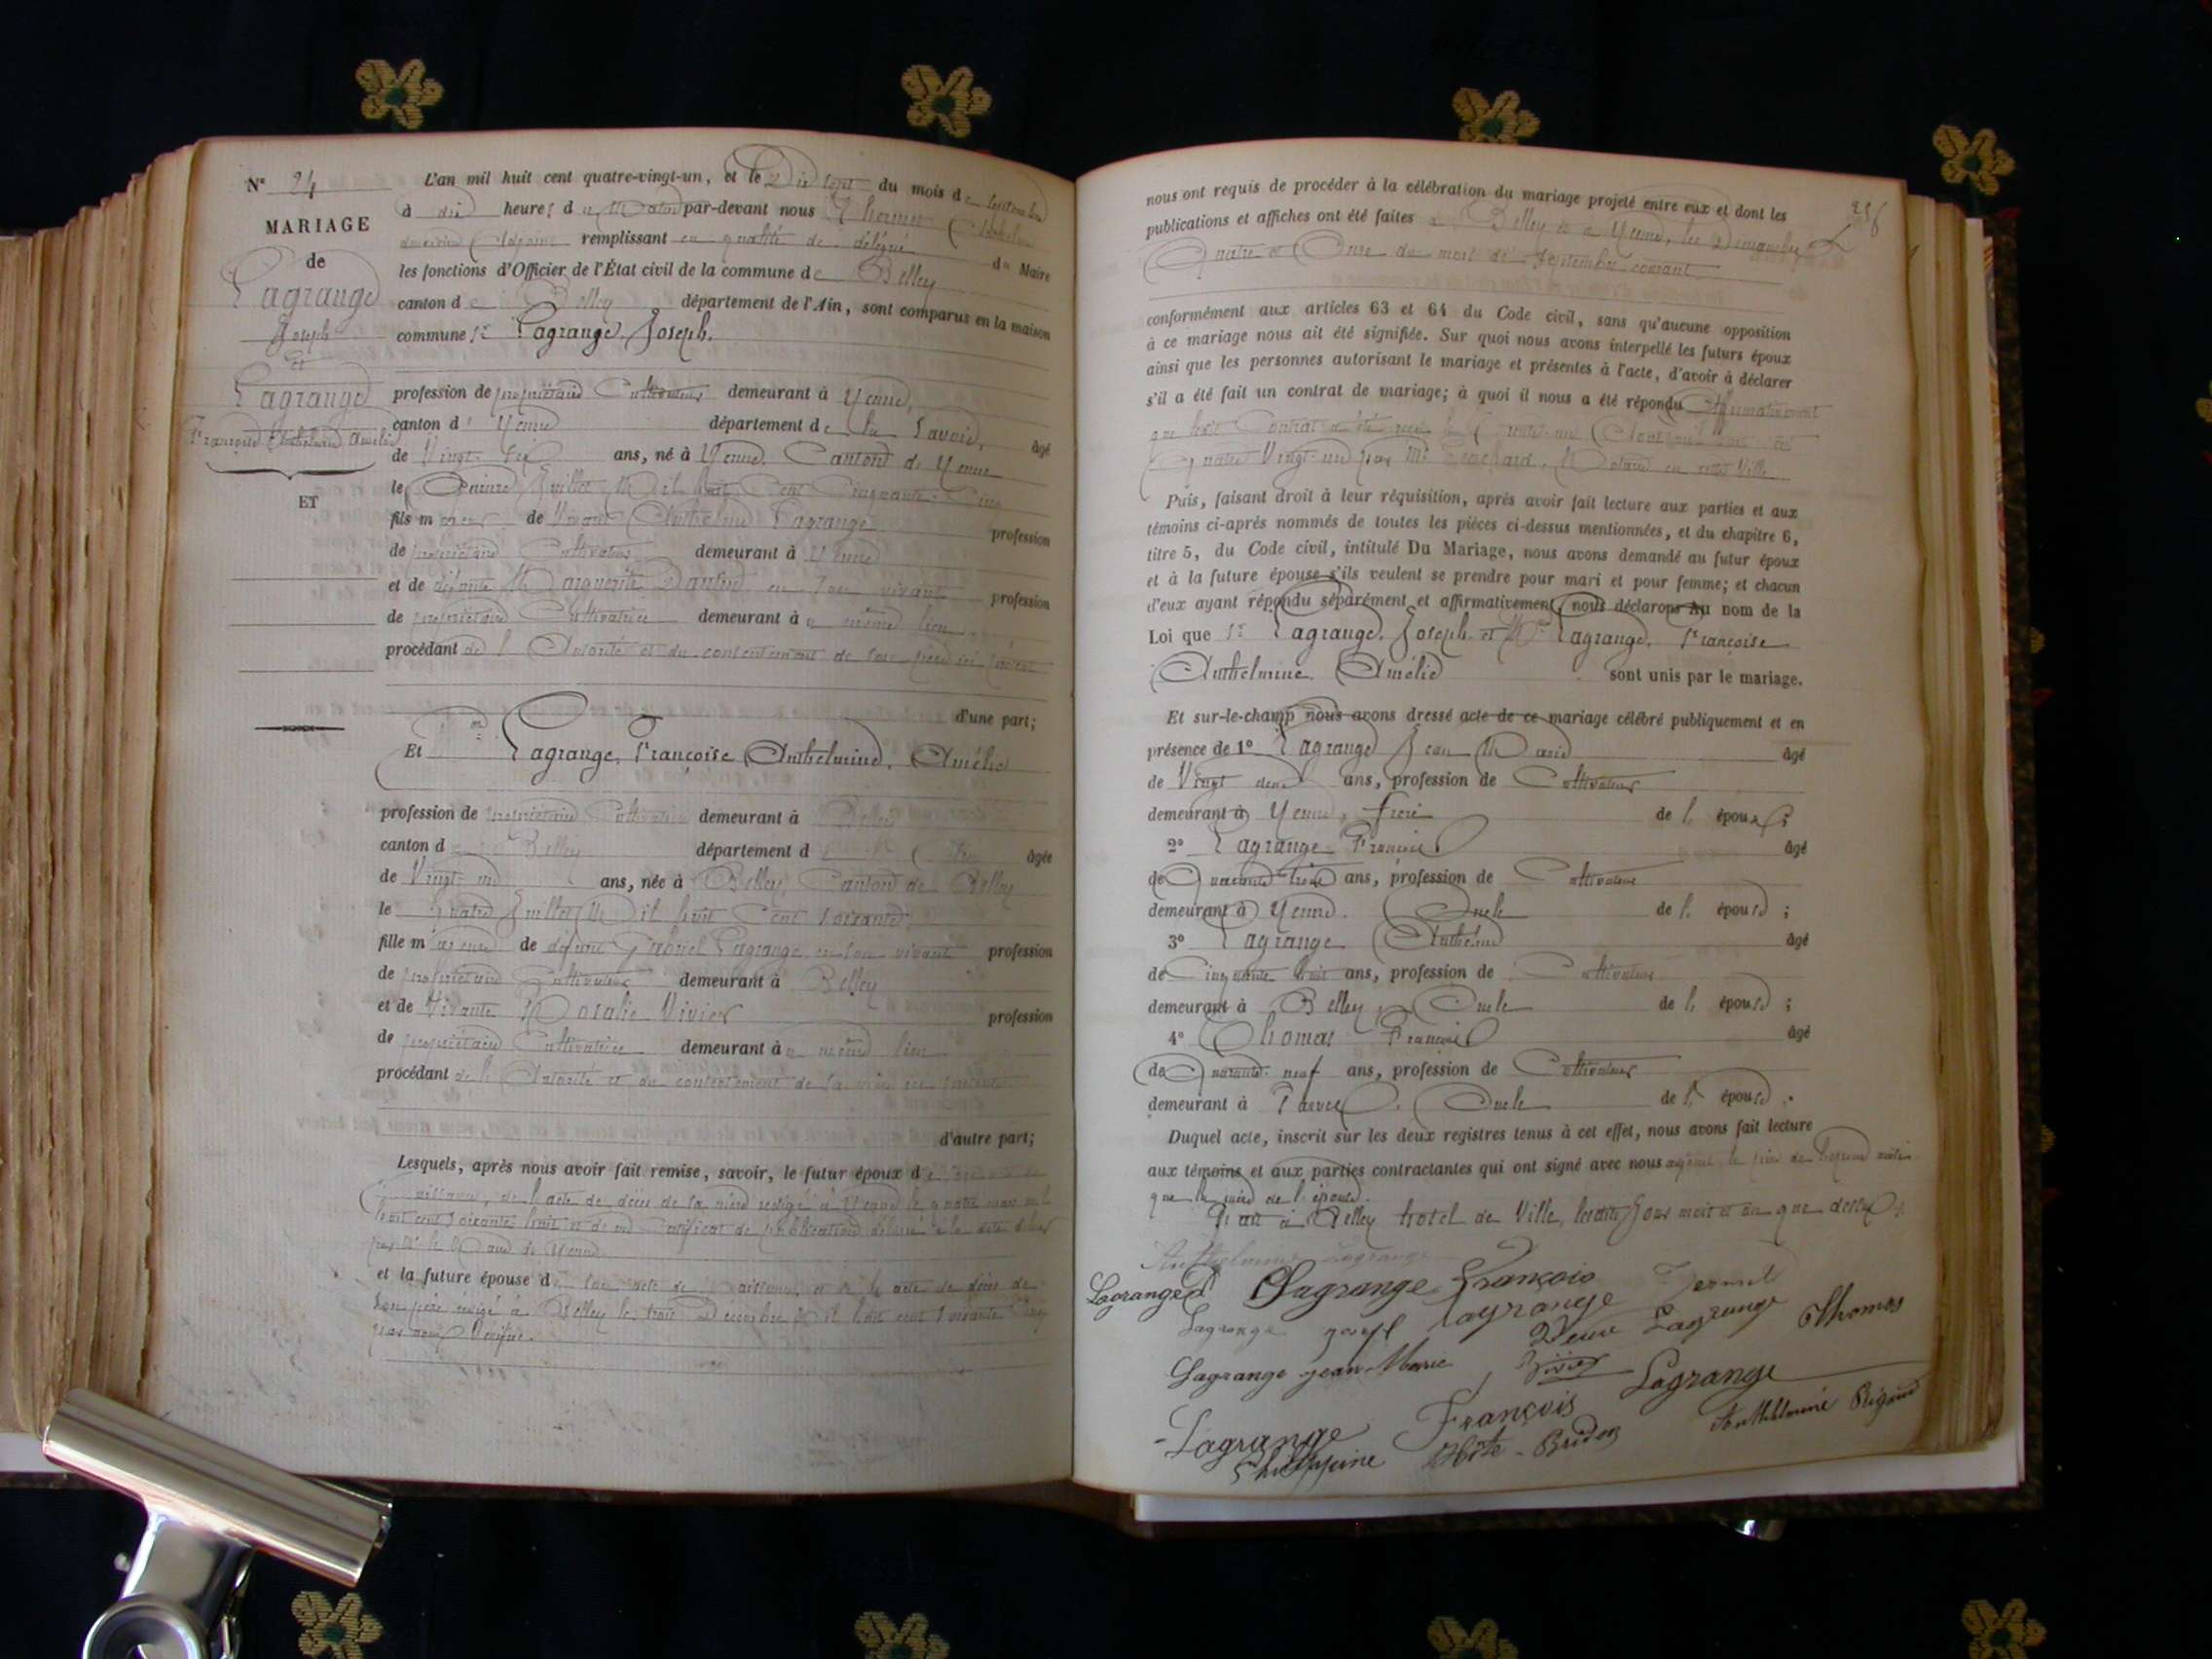 N° 24
MARIAGE
de
Lagrange
Joseph
et
Lagrange
Françoise Anthelmine Amélie
ET
L'an mil huit cent quatre-vingt-un, et le Dix sept du mois de Septembre
à dix heures du Matin par-devant nous
remplissant en qualité de délégué du Maire
les fonctions d'Officier de l'État civil de la commune de Belley
canton de Belley département de l'Ain, sont comparus en la maison
commune Sr Lagrange, Joseph.
profession de propriétaire Cultivateur demeurant à Yenne,
canton d' Yenne département de la Savoie, âgé
de Vingt Six ans, né à Yenne, Canton de Yenne
le Quinze Juillet Mil huit Cent Cinquante-Cinq
fils majeur de vivant Anthelme Lagrange profession
de propriétaire Cultivateur demeurant à Yenne
et de défunte Marguerite Dantin en son vivant profession
de propriétaire Cultivatrice demeurant au même lieu
procédant de l'Autorité et du consentement de son père ici présent
d'une part;
Et Lagrange, Françoise Anthelmine, Amélie
profession de propriétaire Cultivatrice demeurant à Belley
canton de Belley département de l'Ain âgée
de Vingt-un ans, née à Belley, Canton de Belley
le quatre Juillet Mil huit Cent Soixante
fille majeure de défunt Gabriel Lagrange, en son vivant profession
de propriétaire Cultivateur demeurant à Belley
et de Vivante Rosalie Vivier profession
de propriétaire Cultivatrice demeurant au même lieu
procédant de l'Autorité et du consentement de sa mère ici présente
d'autre part;
Lesquels, après nous avoir fait remise, savoir, le futur époux de
naissance, de l'acte de décès de sa mère rédigé à Yenne le quatre mars mil
huit cent soixante-huit et d'un Certificat de publication délivré à la date d'hier
par Mr le Maire de Yenne.
et la future épouse de son acte de naissance et de l'acte de décès de
son père rédigé à Belley le trois Décembre Mil huit cent soixante
par nous Vérifié.
256
nous ont requis de procéder à la célébration du mariage projeté entre eux et dont les
publications et affiches ont été faites à Belley et à Yenne, les Dimanches
Quatre et Onze du mois de Septembre courant
conformément aux articles 63 et 64 du Code civil, sans qu'aucune opposition
à ce mariage nous ait été signifiée. Sur quoi nous avons interpellé les futurs époux
ainsi que les personnes autorisant le mariage et présentes à l'acte, d'avoir à déclarer
s'il a été fait un contrat de mariage; à quoi il nous a été répondu Affirmativement
que ledit Contrat a été reçu le Trente-un Août mil huit cent
Quatre Vingt-un par Me Notaire en cette Ville
Puis, faisant droit à leur réquisition, après avoir fait lecture aux parties et aux
témoins ci-après nommés de toutes les pièces ci-dessus mentionnées, et du chapitre 6,
titre 5, du Code civil, intitulé Du Mariage, nous avons demandé au futur époux
et à la future épouse s'ils veulent se prendre pour mari et pour femme; et chacun
d'eux ayant répondu séparément et affirmativement, nous déclarons au nom de la
Loi que Sr Lagrange, Joseph et Mlle Lagrange, Françoise
Anthelmine, Amélie sont unis par le mariage.
Et sur-le-champ nous avons dressé acte de ce mariage célébré publiquement et en
présence de 1° Lagrange Jean Marie âgé
de Vingt deux ans, profession de Cultivateur
demeurant à Yenne, frère de l' époux;
2° Lagrange François âgé
de Quarante trois ans, profession de Cultivateur
demeurant à Yenne. Oncle de l' épouse ;
3° Lagrange Anthelme âgé
de Cinquante huit ans, profession de Cultivateur
demeurant à Belley, Oncle de l' épouse ;
4° Thomas François âgé
de Quarante-neuf ans, profession de Cultivateur
demeurant à Parves. Oncle de l' épouse.
Duquel acte, inscrit sur les deux registres tenus à cet effet, nous avons fait lecture
aux témoins et aux parties contractantes qui ont signé avec nous le père de l'époux ainsi
que la mère de l'épouse.
Fait à Belley hotel de Ville, lesdits Jour mois et an que dessus.
Anthelmine Lagrange
Lagrange Lagrange François
Lagrange joseph Lagrange Veuve Lagrange Thomas
Lagrange jean Marie Vivier Lagrange
Lagrange François Anthelmine Rigaud